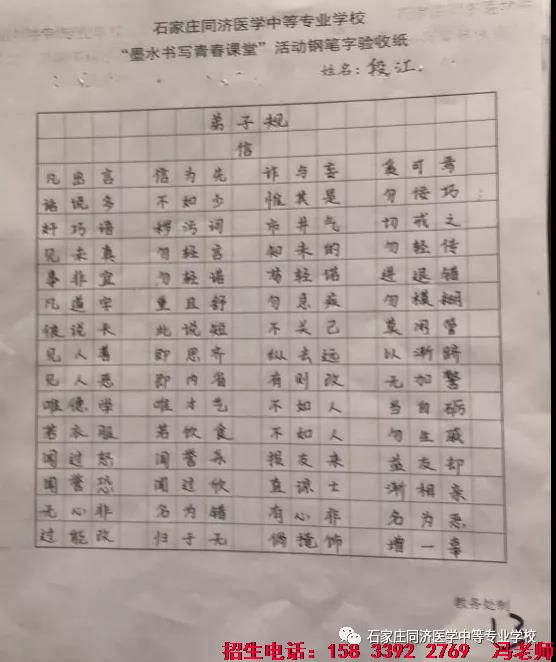 石家庄同济医学中等专业学校
“墨水书写青春课堂”活动钢笔字验收纸
姓名：段江.
弟子规
信
凡出言 信为先 诈与妄 奚可焉
话说多 不如少 惟其是 勿佞巧
奸巧语 秽污词 市井气 切戒之
见未真 勿轻言 知未的 勿轻传
事非宜 勿轻诺 苟轻诺 进退错
凡道字 重且舒 勿急疾 勿模糊
彼说长 此说短 不关己 莫闲管
见人善 即思齐 纵去远 以渐跻
见人恶 即内省 有则改 无加警
唯德学 唯才艺 不如人 当自砺
若衣服 若饮食 不如人 勿生戚
闻过怒 闻誉乐 损友来 益友却
闻誉恐 闻过欣 直谅士 渐相亲
无心非 名为错 有心非 名为恶
过能改 归于无 倘掩饰 增一辜
教务处制
13
石家庄同济医学中等专业学校
招生电话：158 3392 2769 冯老师